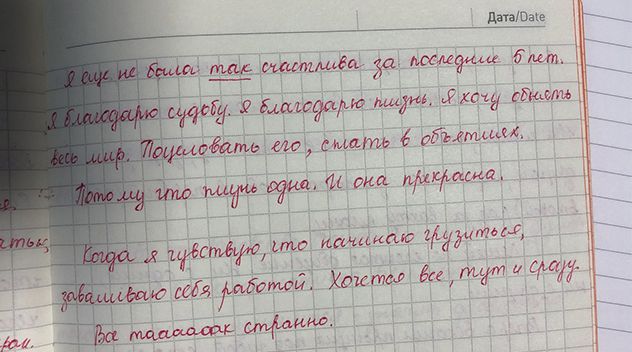 Дата/Date
Я еще не была так счастлива за последние 5 лет.
Я благодарю судьбу. Я благодарю жизнь. Я хочу обнять
весь мир. Поцеловать его, сжать в объятиях.
Потому что жизнь одна. И она прекрасна.
Когда я чувствую, что начинаю грузиться,
заваливаю себя работой. Хочется все, тут и сразу.
Все тааааааак странно.